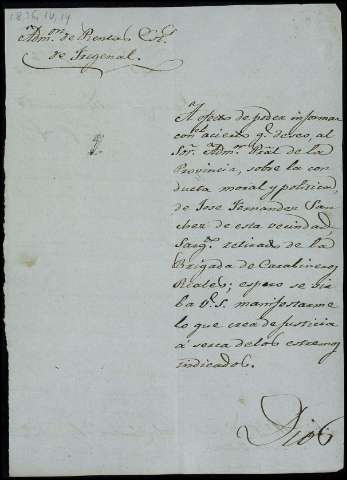 Adm.on de Rentas
de Fregenal.
A efecto de poder informar
con el acierto q.e deseo, al
Sor. Adm.or Pral de la
Provincia, sobre la con
ducta moral y politica,
de Jose Fernandez San
chez de esta vecindad,
Sarg.to retirado de la
Brigada de Carabineros
Reales; espero se sir
ba V.S. manifestarme
lo que crea de justicia
á serca de los estremos
indicados.
Dios